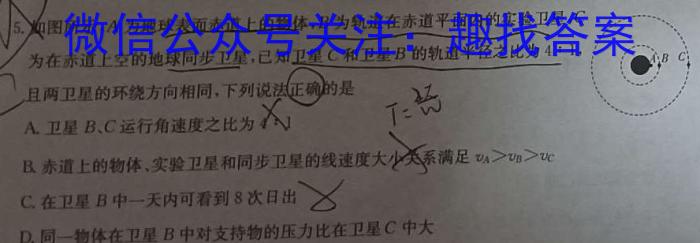 5. 如图所示,A为地球表面赤道上的物体,B为轨道在赤道平面内的实验卫星,C
微信公众号关注:趣找答案
为在赤道上空的地球同步卫星,已知卫星C和卫星B的轨道半径之比为4
且两卫星的环绕方向相同,下列说法正确的是
A. 卫星B、C运行角速度之比为
T=2π/ω
B. 赤道上的物体、实验卫星和同步卫星的线速度大小关系满足 vA>vB>vC
C. 在卫星B中一天内可看到8次日出
D. 同一物体在卫星B中对支持物的压力比在卫星C中大
A B C